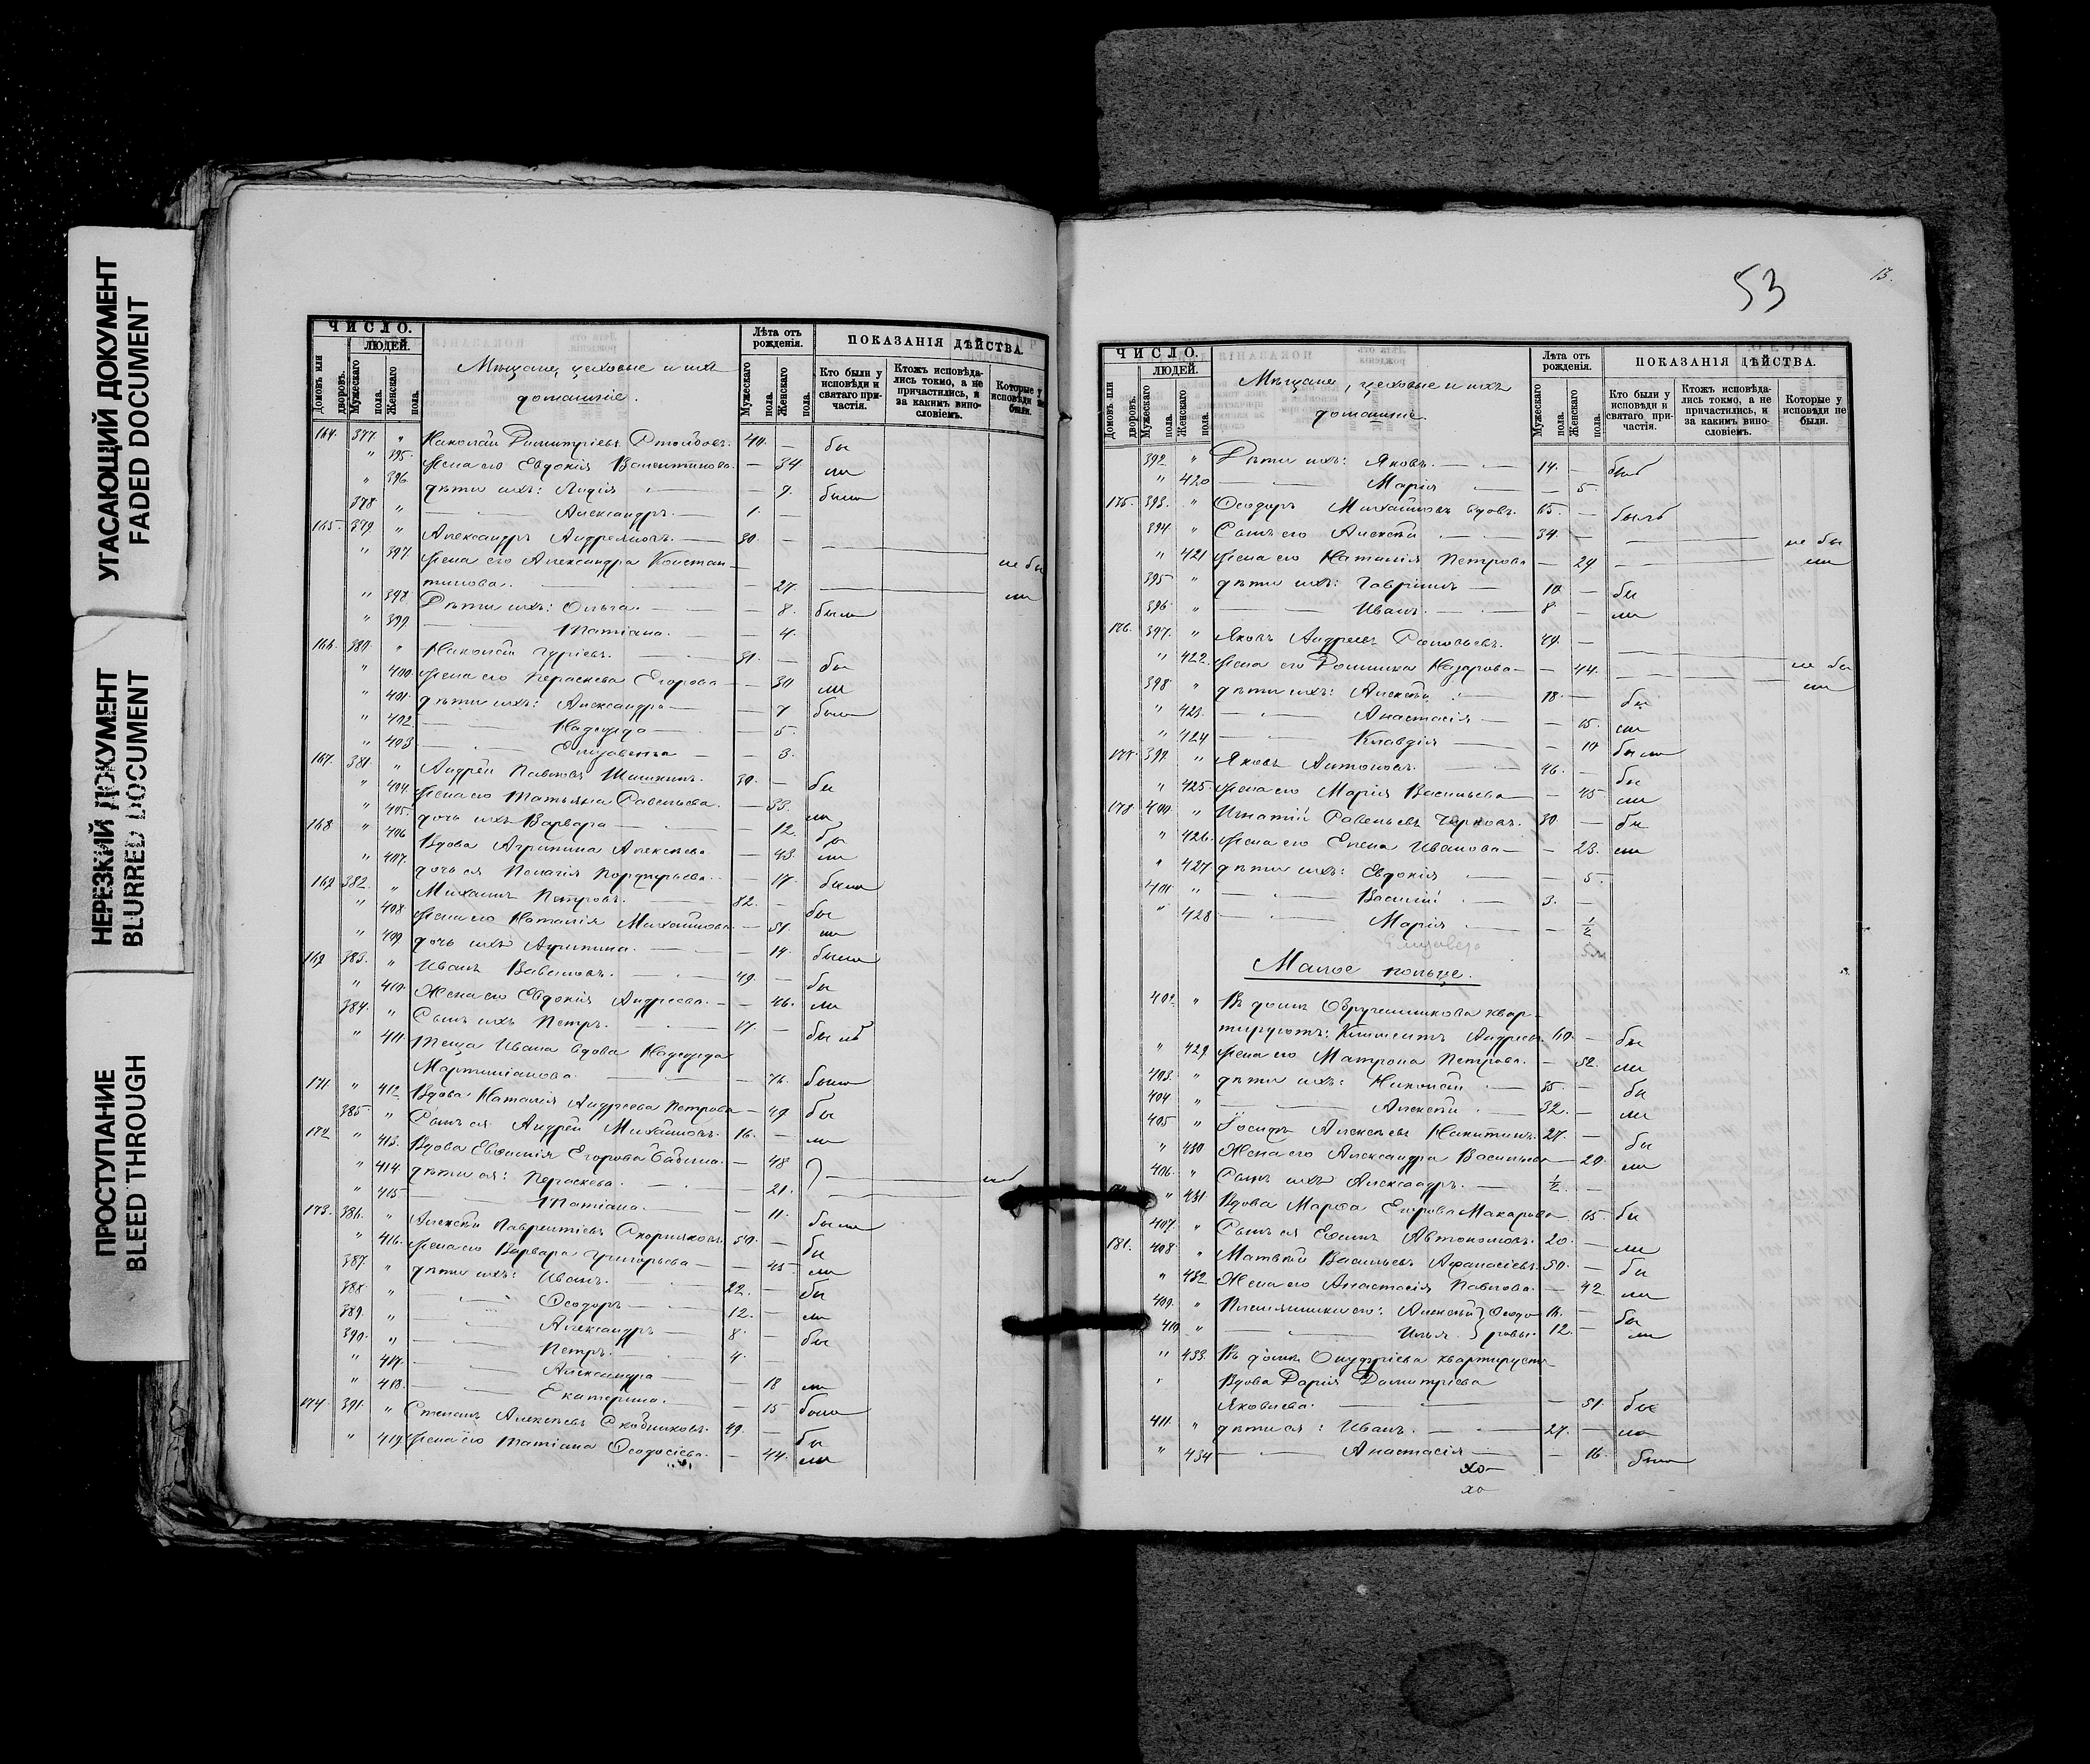 УГАСАЮЩИЙ ДОКУМЕНТ
FADED DOCUMENT
НЕРЕЗКИЙ ДОКУМЕНТ
BLURRED DOCUMENT
ПРОСТУПАНИЕ
BLEED THROUGH
ЧИСЛО.
ЛЮДЕЙ.
Домовъ или дворовъ.
Мужескаго пола.
Женскаго пола.
Мѣщане, цеховые и ихъ
домашніе.
Лѣта отъ рожденія.
Мужескаго пола.
Женскаго пола.
ПОКАЗАНІЯ ДѢЙСТВА.
Кто были у исповѣди и святаго причастія.
Ктожъ исповѣдались токмо, а не причастились, и за какимъ винословіемъ.
Которые у исповѣди не были.
164. 377. " Николай Димитріевъ 40. — бы
" 395. жена его Евдокія Валентинова — 34. ли
" 396. дѣти ихъ: Лидія — 9. была
378 " Александръ. 1. —
165. 379. " Александръ Андреяновъ. 30. —
" 397. жена его Александра Констан- не бы
тинова. — 27. ли
" 398. Дѣти ихъ: Ольга. — 8. были
" 399 Татіана. — 4.
166. 380. " Николай Гуріевъ. 31. — бы
" 400. жена его Параскева Егорова — 30 ли
" 401. дѣти ихъ: Александра — 7 была
" 402. Надежда — 5.
" 403 Елизавета — 3.
167. 381. " Андрей Павловъ Шишкинъ. 39. — бы
" 404. жена его Татьяна Савельева. — 33. ли
" 405. дочь ихъ Варвара — 12. бы
168 " 406 Вдова Агрипина Алексѣева — 43. ли
" 407. дочь ея Пелагія Порфирьева. — 17. была
169 382. " Михаилъ Петровъ. 52. — бы
" 408. жена его Наталія Михайлова — 51. ли
" 409 дочь ихъ Агрипина. — 14. была
169 383. " Иванъ Вавиловъ. 49. — бы
" 410. Жена его Евдокія Андреева. — 46. ли
384. " Сынъ ихъ Петръ. 17. — былъ
" 411. теща Ивана вдова Надежда
Мартиніанова — 76. была
171. " 412 Вдова Наталія Андреева Петрова — 49 бы
385. " Сынъ ея Андрей Михайловъ. 16. — ли
172 " 413. Вдова Евфимія Егорова Бабина. — 48
" 414. дѣти ея: Параскева. 21.
" 415 Татіана. — 11. была
173. 386. " Алексѣй Лаврентіевъ Скорняковъ. 50. — бы
" 416. жена его Варвара Григорьева — 45 ли
387. " дѣти ихъ: Иванъ. 22. — бы
388. " Ѳеодоръ 12. — ли
389. " Александръ 8. — бы
390. " Петръ. 4. —
" 417. Александра — 18 ли
" 418. Екатерина. — 15 была
174. 391. " Степанъ Алексѣевъ Скобниковъ. 49. — бы
" 419 жена его Татіана Ѳеодосіева. — 44. ли
53
13.
ЧИСЛО.
ЛЮДЕЙ.
Домовъ или дворовъ.
Мужескаго пола.
Женскаго пола.
Мѣщане, цеховые и ихъ
домашніе
Лѣта отъ рожденія.
Мужескаго пола.
Женскаго пола.
ПОКАЗАНІЯ ДѢЙСТВА.
Кто были у исповѣди и святаго причастія.
Ктожъ исповѣдались токмо, а не причастились, и за какимъ винословіемъ.
Которые у исповѣди не были.
392 " Дѣти ихъ: Яковъ. 14. — былъ
" 420 Марія — 5.
175. 393. " Ѳеодоръ Михайловъ вдовъ. 65. — былъ
394. " Сынъ его Алексѣй 34. — не бы
" 421 жена его Наталія Петрова — 29 ли
395. " дѣти ихъ: Гавріилъ 10. — бы
396. " Иванъ. 8. ли
176. 397. " Яковъ Андреевъ Соловьевъ. 49. — не бы
" 422. жена его Домника Назарова — 44. ли
398. " дѣти ихъ: Алексѣй 18. — бы
" 423. Анастасія — 15. ли
" 424 Клавдія — 10 была
177. 399. " Яковъ Антоновъ. 46. — бы
" 425. жена его Марія Васильева — 45 ли
178 400. " Игнатій Савельевъ Черновъ. 30. — бы
" 426. жена его Елена Иванова — 23. ли
" 427 дѣти ихъ: Евдокія — 5.
401. " Василій 3. —
" 428 Марія — ½
Елизавета
Малое кольце.
402. " Въ домѣ Обручникова квар-
тируютъ: Климентъ Андреевъ 60. — бы
" 429 жена его Матрона Петрова. — 52. ли
403. " дѣти ихъ: Николай 35. — бы
404 " Алексѣй 32. — ли
405 " Іосифъ Алексѣевъ Никитинъ. 27. — бы
" 430 Жена его Александра Васильева — 20. ли
406. " Сынъ ихъ Александръ. ½. —
" 431. Вдова Марѳа Егорова Макарова 65. бы
407. " Сынъ ея Евѳимъ Автономовъ. 20. — ли
181. 408. " Матвѣй Васильевъ Афанасіевъ. 50. — бы
" 432 Жена его Анастасія Павлова. — 42. ли
409. " Племянники его: Алексѣй } Ѳеодо 16. — бы
410. " Илья. } ровы. 12. — ли
" 433. Въ домѣ Онуфріева квартируетъ
Вдова Дарія Димитріева
Яковлева. — 51. бы
411. " дѣти ея: Иванъ. 27. — ли
" 434 Анастасія — 16. была